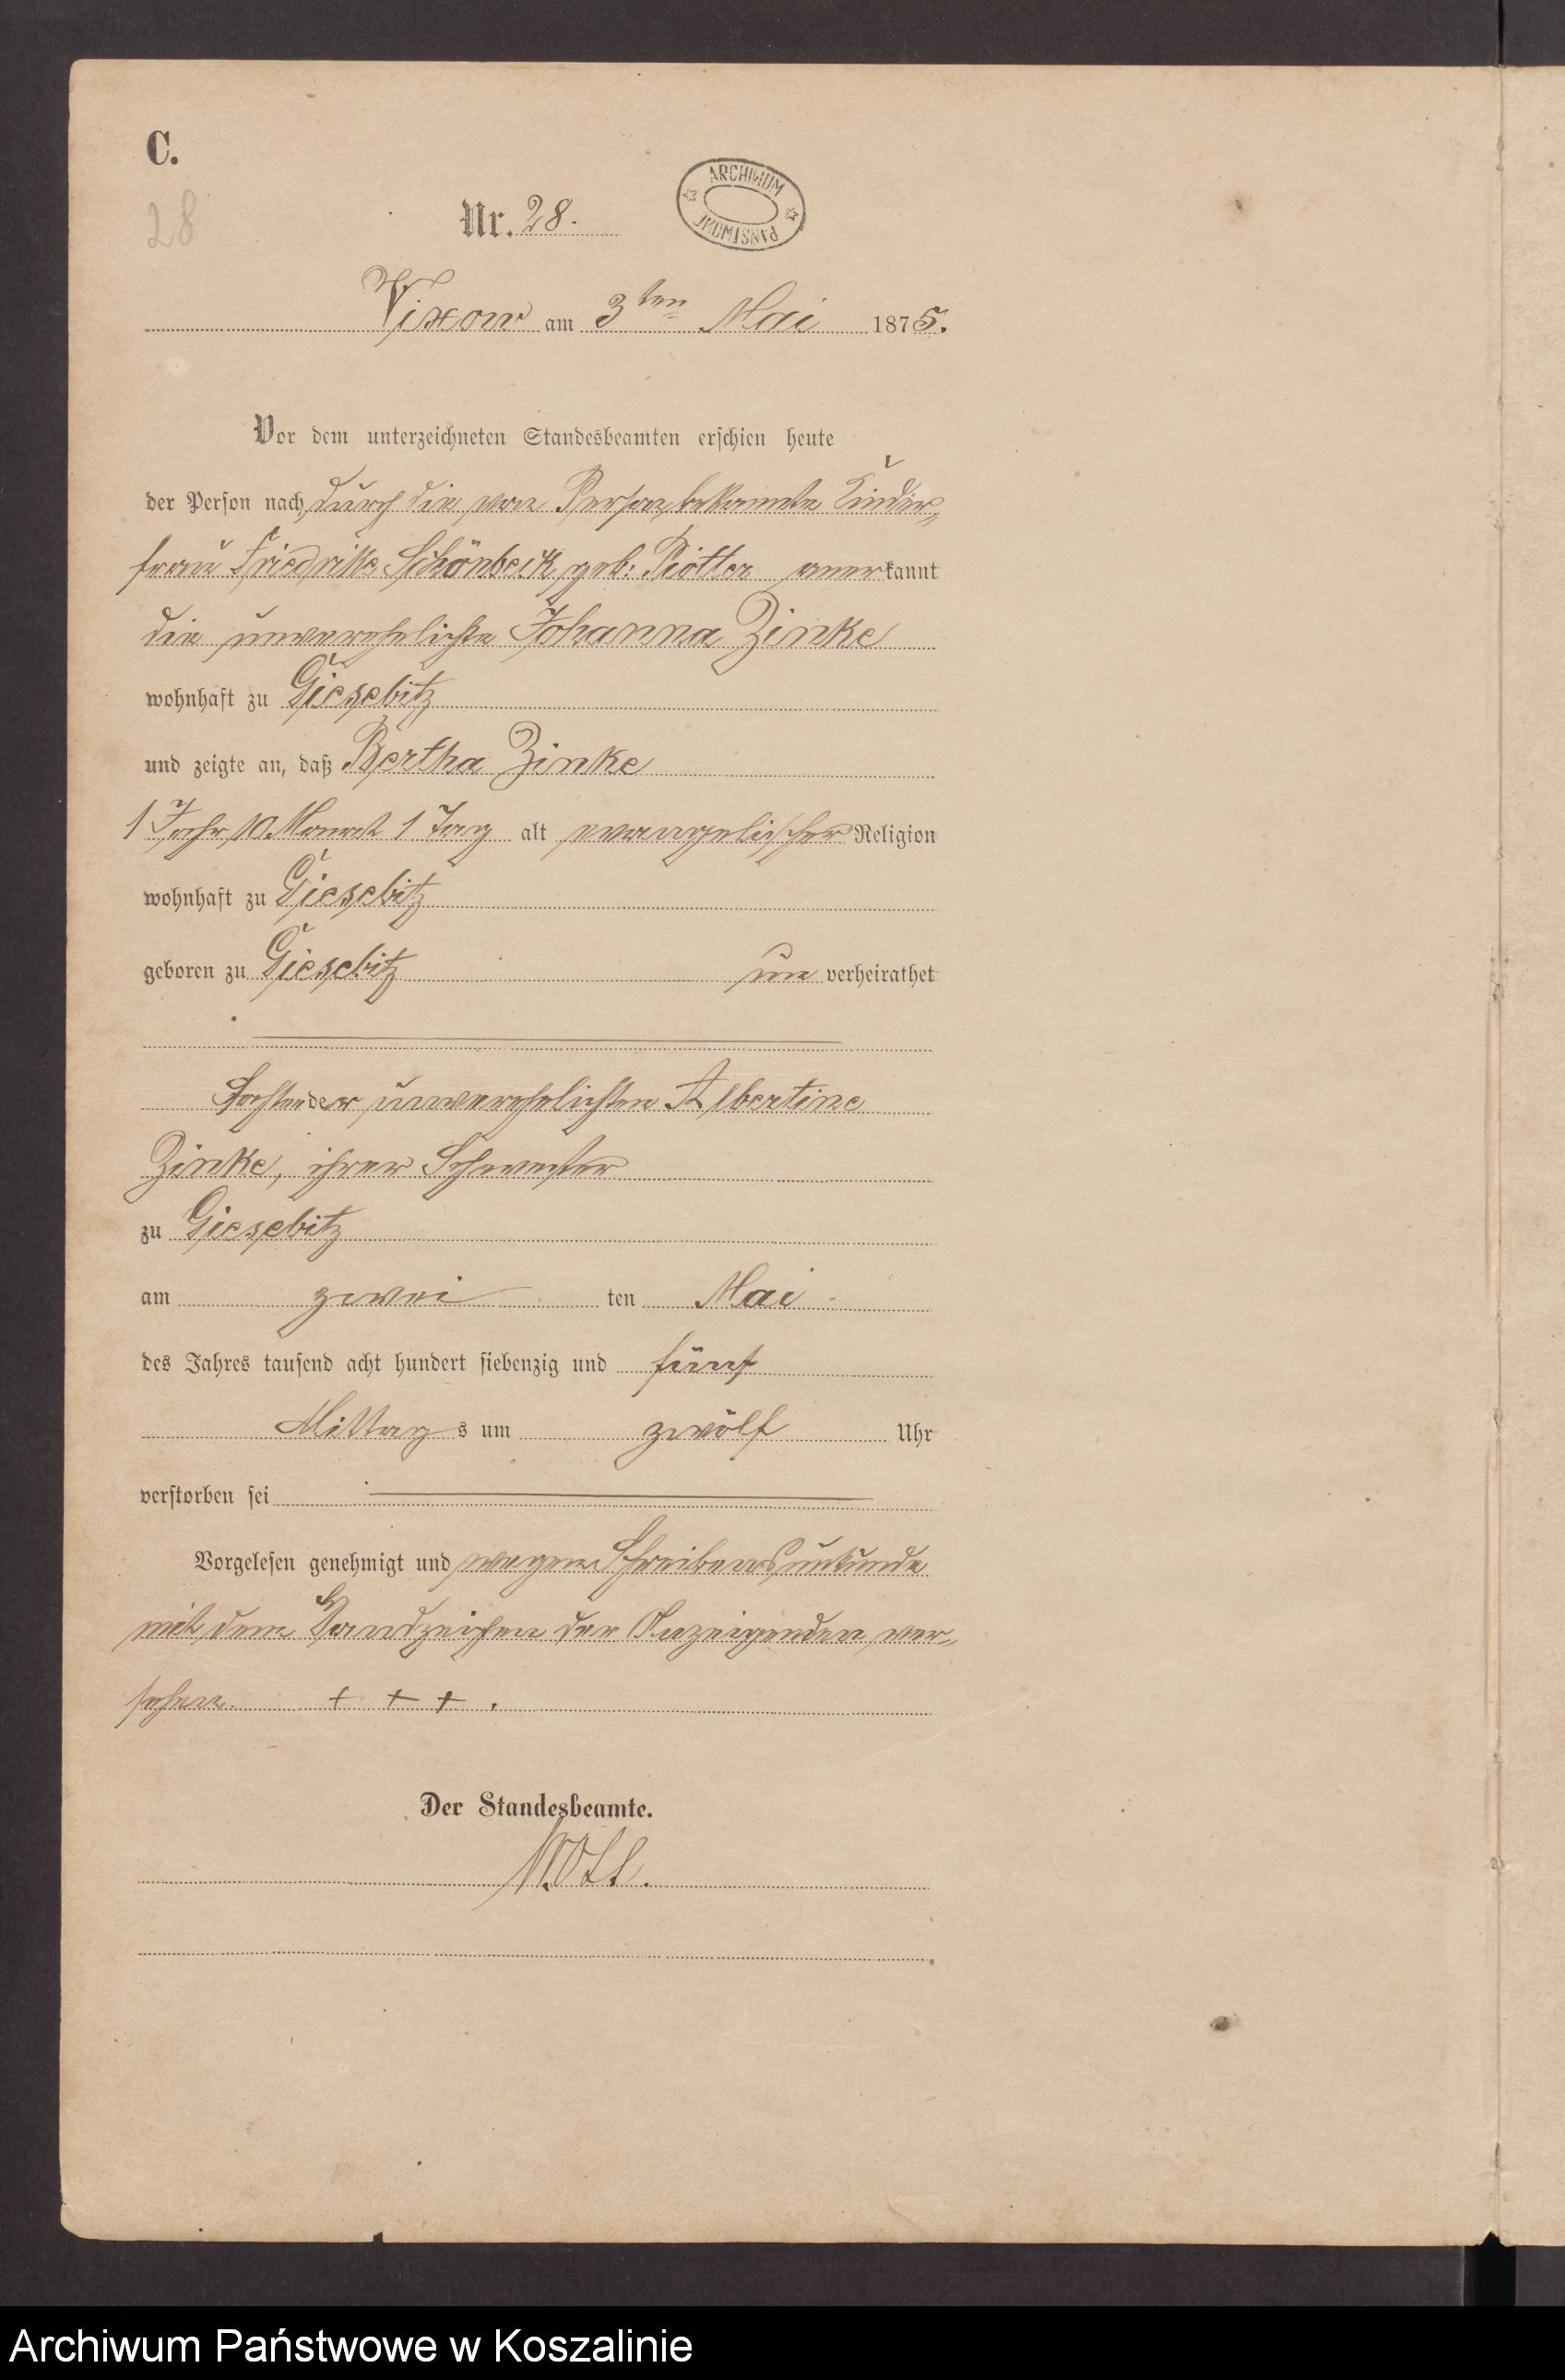 C.
28
Nr. 28.
ARCHIWUM PAŃSTWOWE
Vixow am 3ten Mai 1875.
Vor dem unterzeichneten Standesbeamten erschien heute
der Person nach, durch die von Person bekannte Kinder-
frau Friedrike Schönbeck geb. Piotter anerkannt
die unverehelichte Johanna Zinke
wohnhaft zu Giesebitz
und zeigte an, daß Bertha Zinke
1 Jahr 10 Monat 1 Tag alt evangelischer Religion
wohnhaft zu Giesebitz
geboren zu Giesebitz un verheirathet
Tochter der unverehelichten Albertine
Zinke, ihrer Schwester
zu Giesebitz
am zwei ten Mai
des Jahres tausend acht hundert siebenzig und fünf
Mittag s um zwölf Uhr
verstorben sei
Vorgelesen genehmigt und wegen Schreibensunkunde
mit dem Handzeichen der Anzeigenden ver-
sehen. + + + .
Der Standesbeamte.
Archiwum Państwowe w Koszalinie